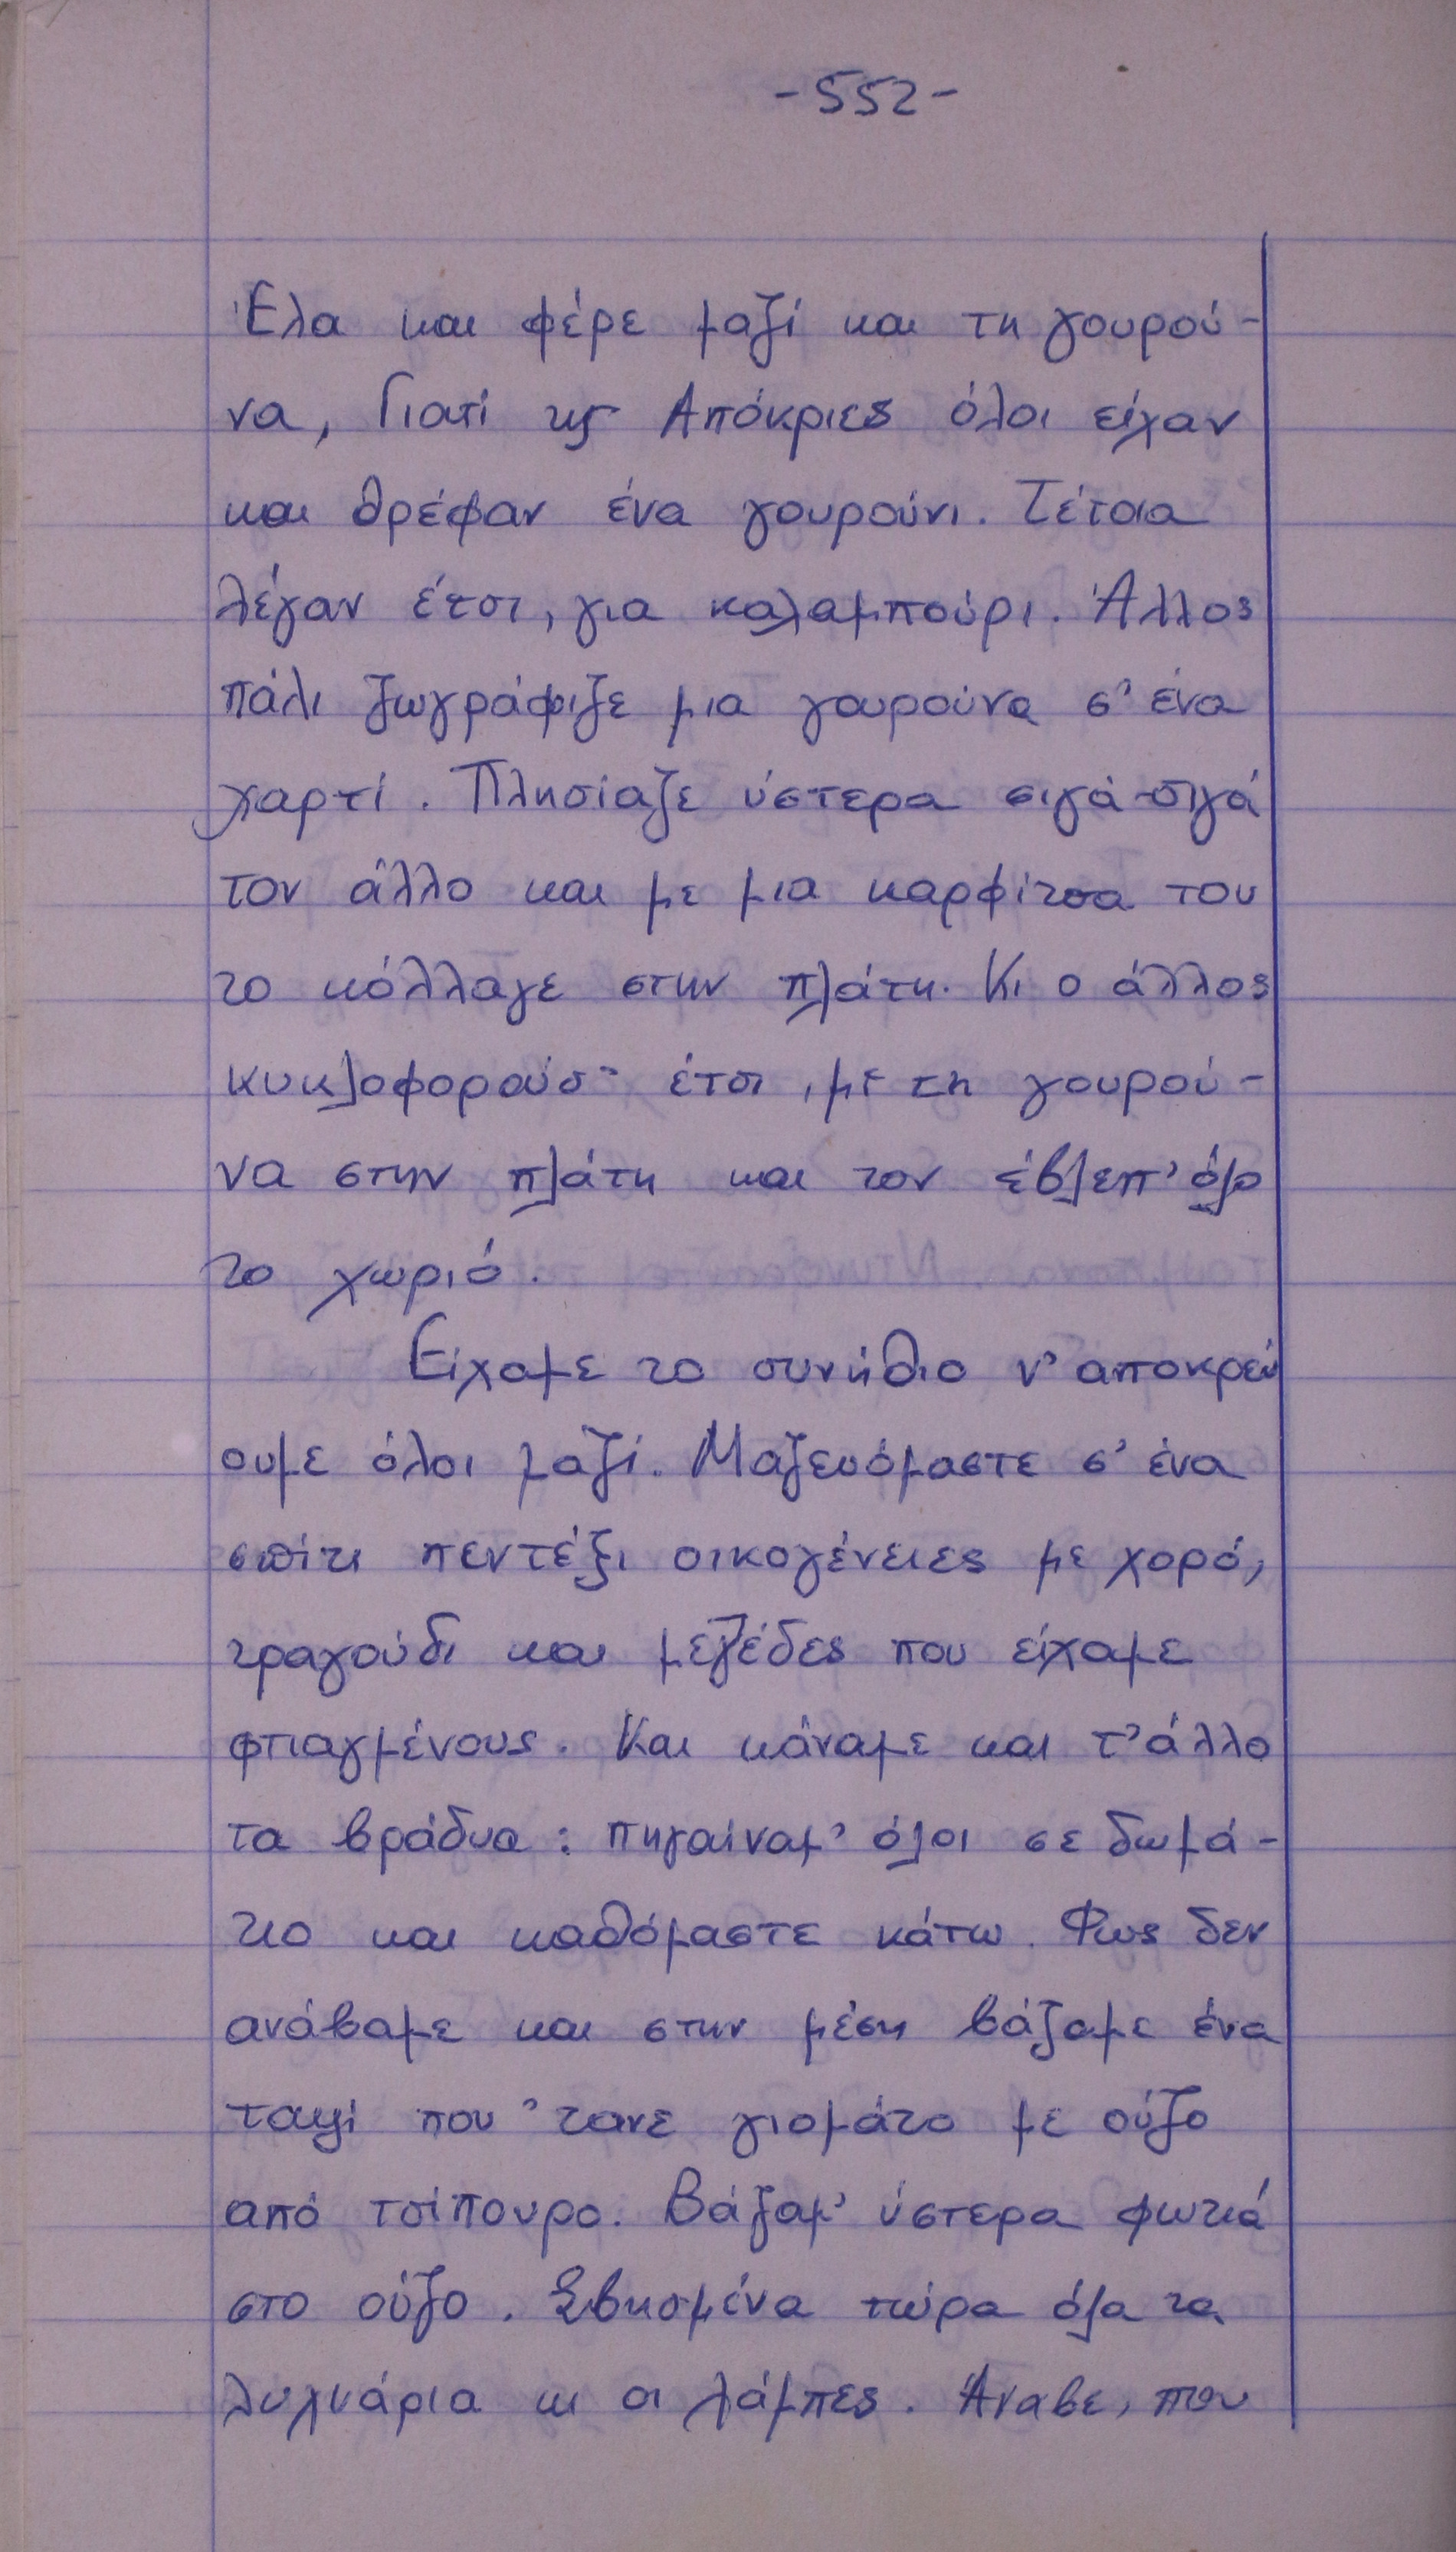 -552-
Έλα και φέρε μαζί και τη γουρού-
να, Γιατί τις Απόκριες όλοι είχαν
και θρέφαν ένα γουρούνι. Τέτοια
λέγαν έτσι, για καλαμπούρι. Άλλος
πάλι ζωγράφιζε μια γουρούνα σ' ένα
χαρτί. Πλησίαζε ύστερα σιγά-σιγά
τον άλλο και με μια καρφίτσα του
το κόλλαγε στην πλάτη. Κι ο άλλος
κυκλοφορούσ' έτσι, με τη γουρού-
να στην πλάτη και τον έβλεπ' όλο
το χωριό.
Είχαμε το συνήθιο ν' αποκρεύ
ουμε όλοι μαζί. Μαζευόμαστε σ' ένα
σπίτι πεντέξι οικογένειες με χορό,
τραγούδι και μεζέδες που είχαμε
φτιαγμένους. Και κάναμε και τ' άλλο
τα βράδυα: πηγαίναμ' όλοι σε δωμά-
τιο και καθόμαστε κάτω. Φως δεν
ανάβαμε και στην μέση βάζαμε ένα
ταψί που 'τανε γιομάτο με ούζο
από τσίπουρο. Βάζαμ' ύστερα φωτιά
στο ούζο. Σβησμένα τώρα όλα τα
λυχνάρια κι οι λάμπες. Άναβε, που